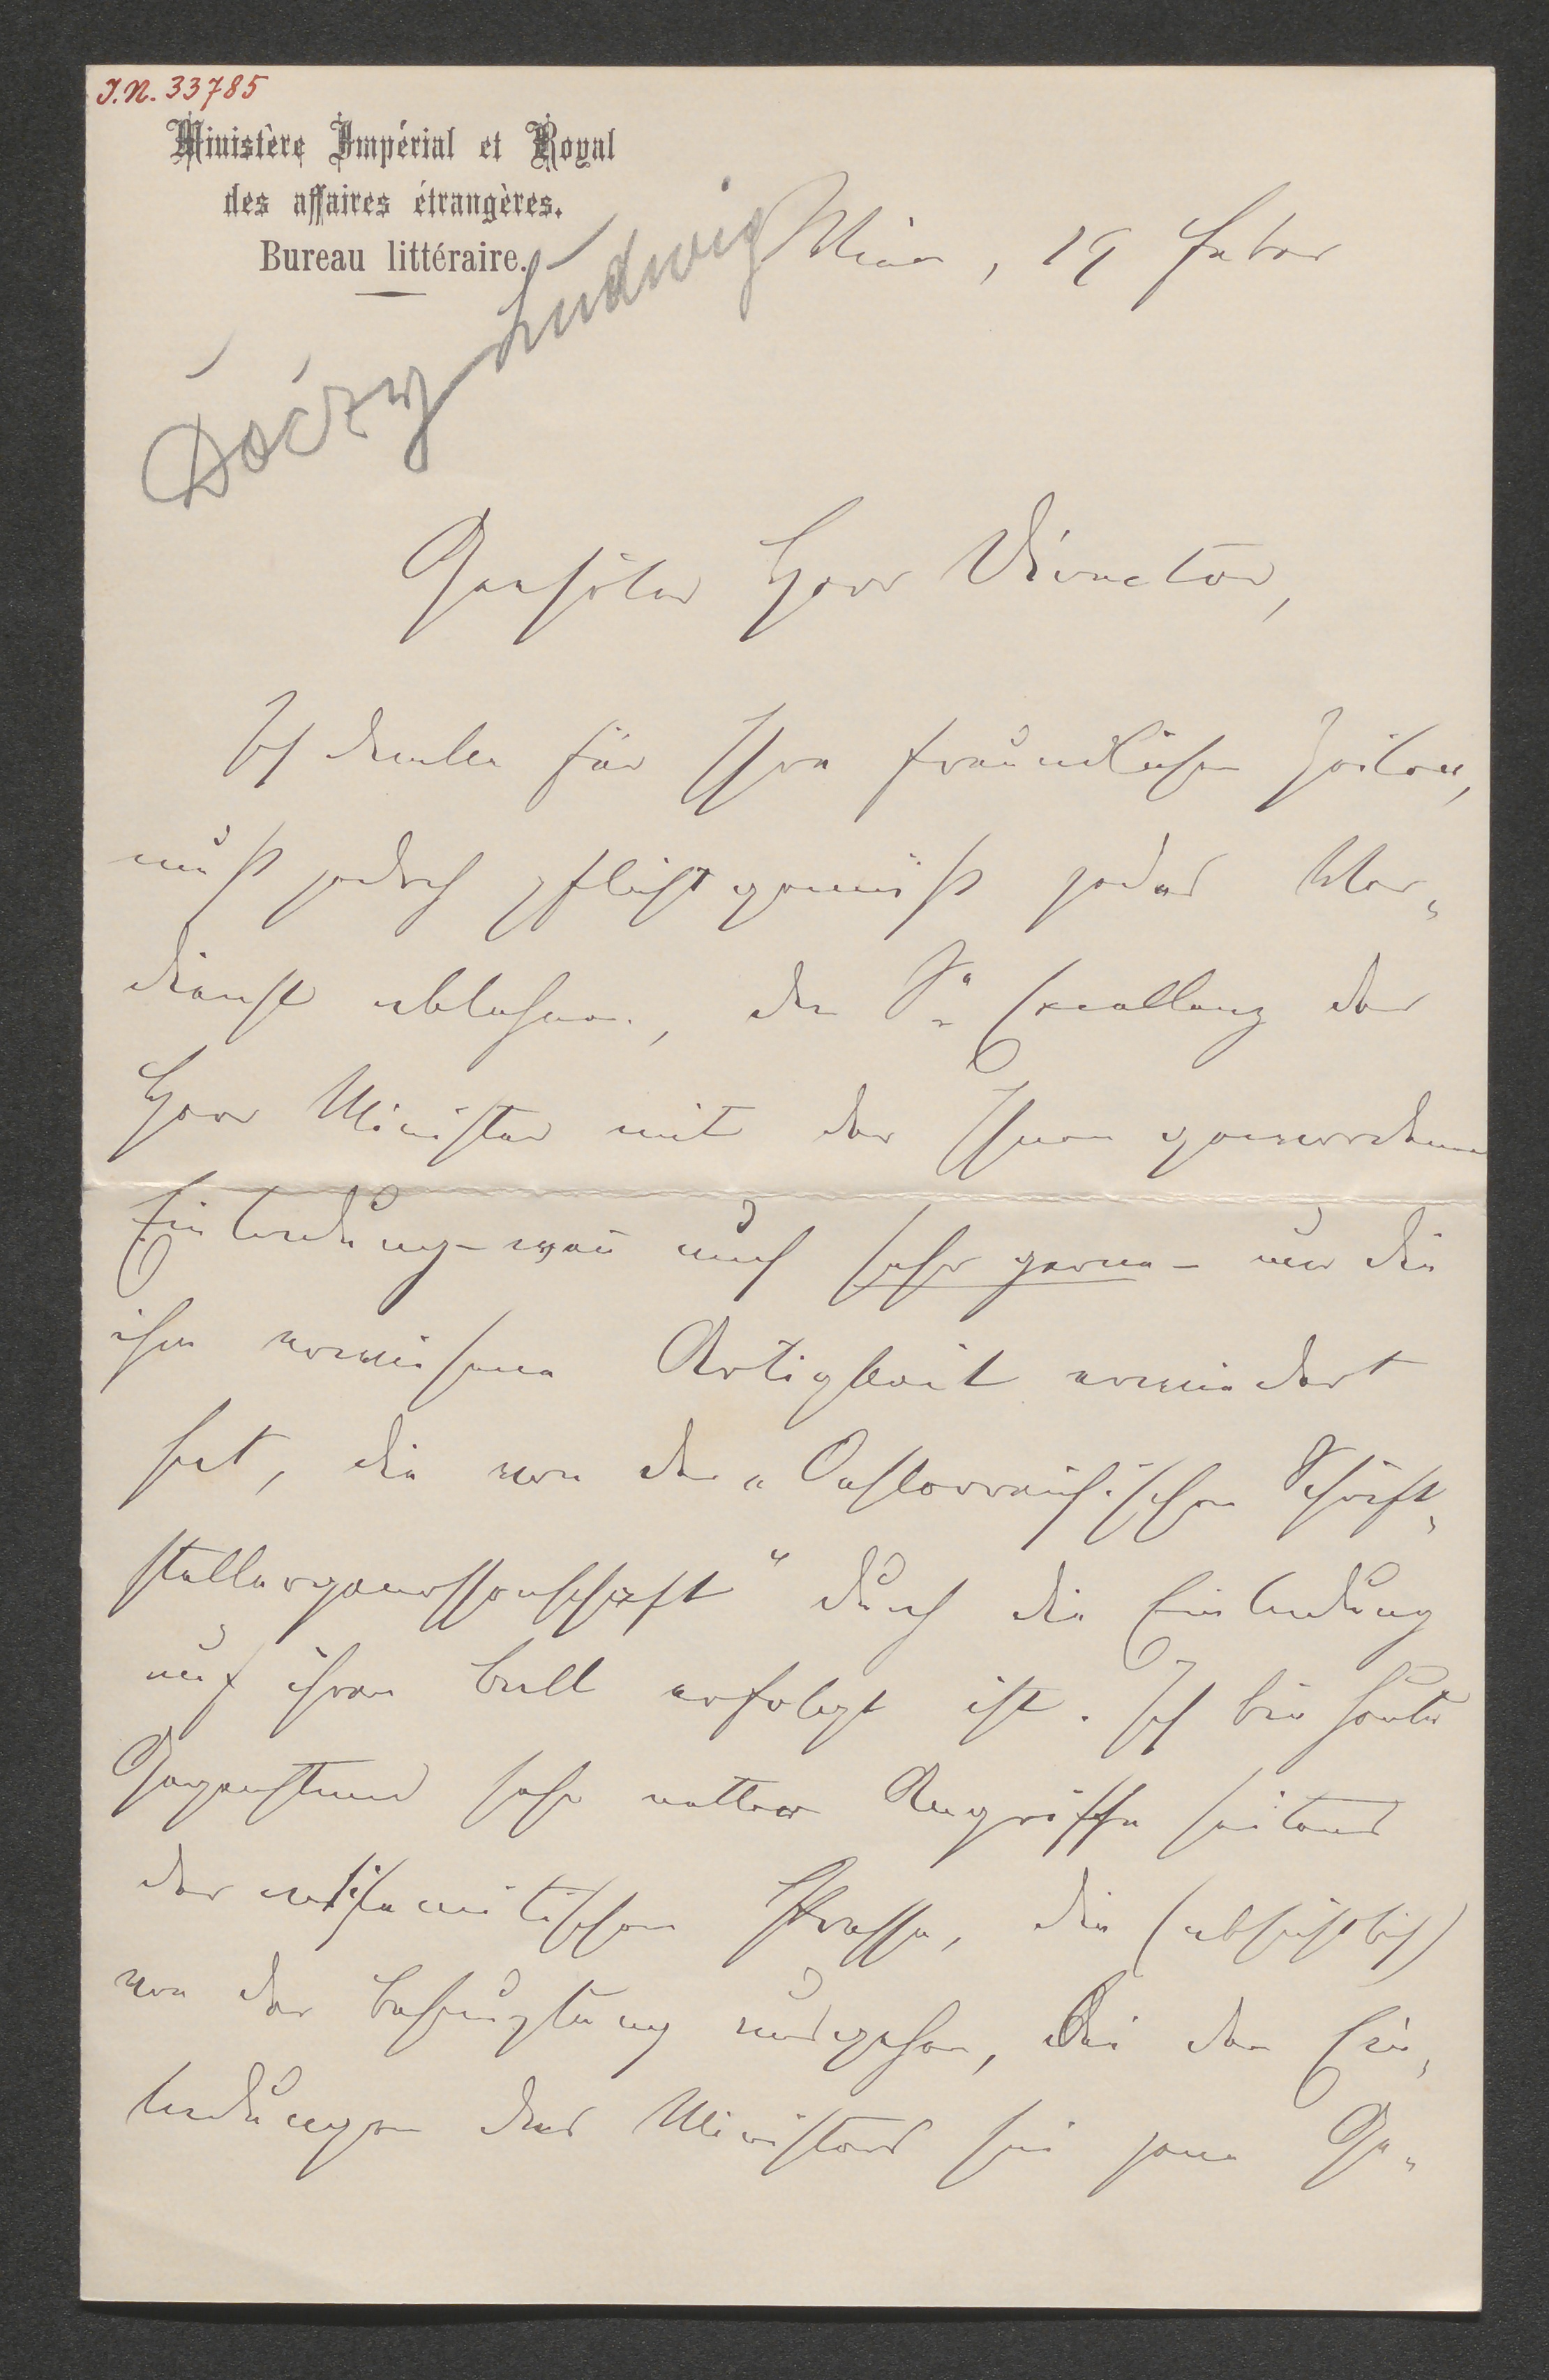 I.N. 33785
Ministère Impérial et Royal
des affaires étrangères.
Bureau littéraire.
Dóczy Ludwig
Wien, 19 Feber
Geehrter Herr Director,
Ich danke für Ihre freundlichen Zeilen,
muß jedoch pflichtgemäß jedes Ver-
dienst ablehnen, da Se Excellenz der
Herr Minister mit der Ihnen gewordenen
Einladung – wenn auch sehr gerne – nur die
ihm erwiesene Artigkeit erwiedert
hat, die von der „Oesterreichischen Schrift-
stellergenossenschaft" durch die Einladung
auf ihren Ball erfolgt ist. Ich bin heute
Gegenstand sehr netter Angriffe seitens
der antisemitischen Presse, die (absichtlich)
von der Behauptung ausgehen, bei den Ein-
ladungen des Ministers sei jene Ge-